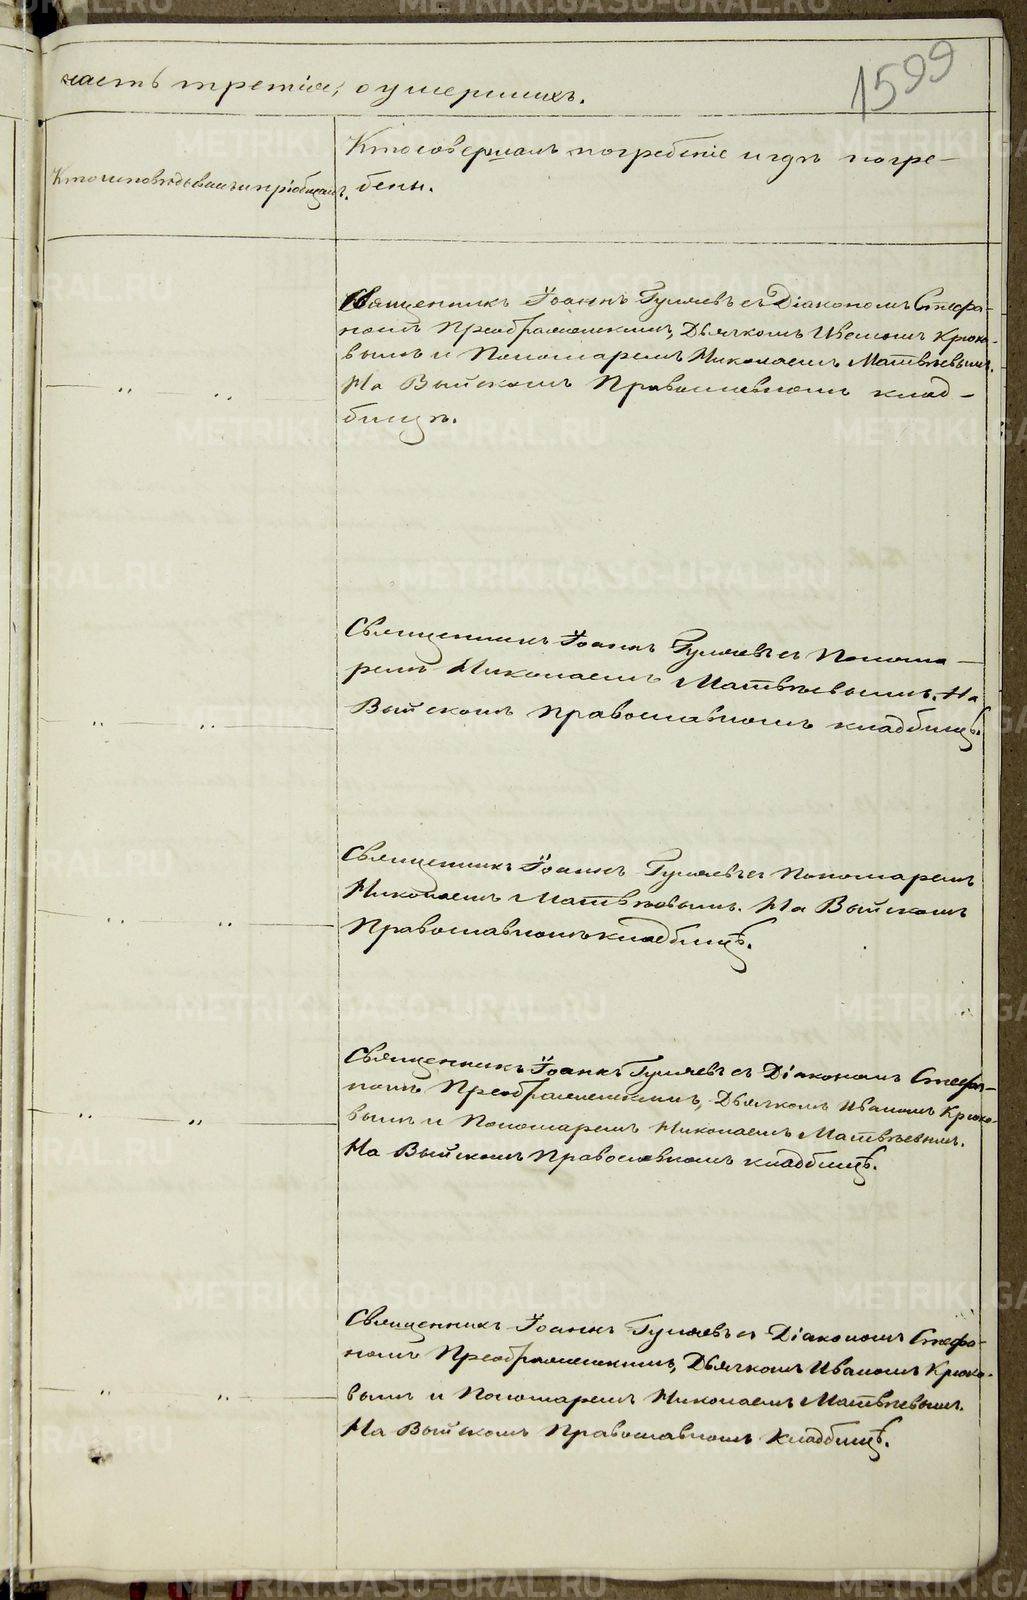 часть третія, о умершихъ.
1599
Кто исповѣдывалъ и пріобщалъ.
Кто совершалъ погребеніе и гдѣ погре-
бены.
Священникъ Іоаннъ Гуляевъ съ Діакономъ Стефа-
номъ Преображенскимъ, Дьячкомъ Иваномъ Крюко-
вымъ и Пономаремъ Николаемъ Матвѣевымъ.
На Выйскомъ Православномъ клад-
бищѣ.
Священникъ Іоаннъ Гуляевъ съ Понома-
ремъ Николаемъ Матвѣевымъ. На
Выйскомъ Православномъ кладбищѣ.
Священникъ Іоаннъ Гуляевъ съ Пономаремъ
Николаемъ Матвѣевымъ. На Выйскомъ
Православномъ кладбищѣ.
Священникъ Іоаннъ Гуляевъ съ Діакономъ Стефа-
номъ Преображенскимъ, Дьячкомъ Иваномъ Крюко-
вымъ и Пономаремъ Николаемъ Матвѣевымъ.
На Выйскомъ Православномъ кладбищѣ.
Священникъ Іоаннъ Гуляевъ съ Діакономъ Стефа-
номъ Преображенскимъ, Дьячкомъ Иваномъ Крюко-
вымъ и Пономаремъ Николаемъ Матвѣевымъ.
На Выйскомъ Православномъ Кладбищѣ.
METRIKI.GASO-URAL.RU